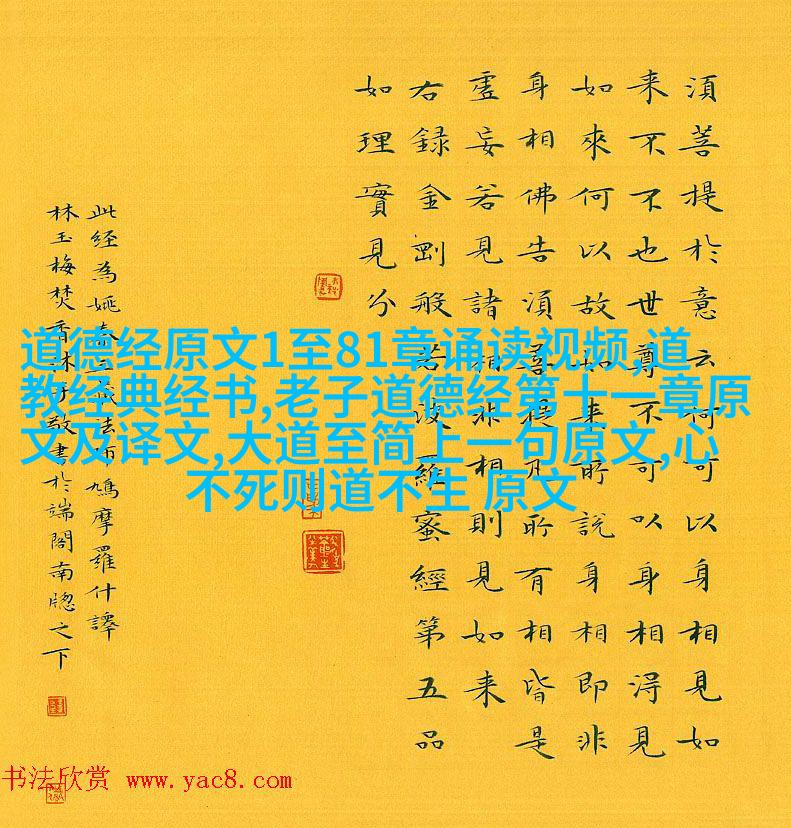 須菩提於意云何可以身相見如
来不不也世尊不可以身相淂見
如來何以故如来所說身相即非
身相佛告須菩提凡所有相皆是
虛妄若見諸相非相則見如来
右録金剛般若波羅蜜經第五品
如理實見分
此経為姚秦三藏法師鳩摩羅什譯
林玉梅焚香沐手敬書於端閣南牕之下
道德经原文1至81章诵读视频,道
教经典经书,老子道德经第十一章原
文及译文,大道至简上一句原文,心
不死则道不生 原文
书法欣赏 www.yac8.com